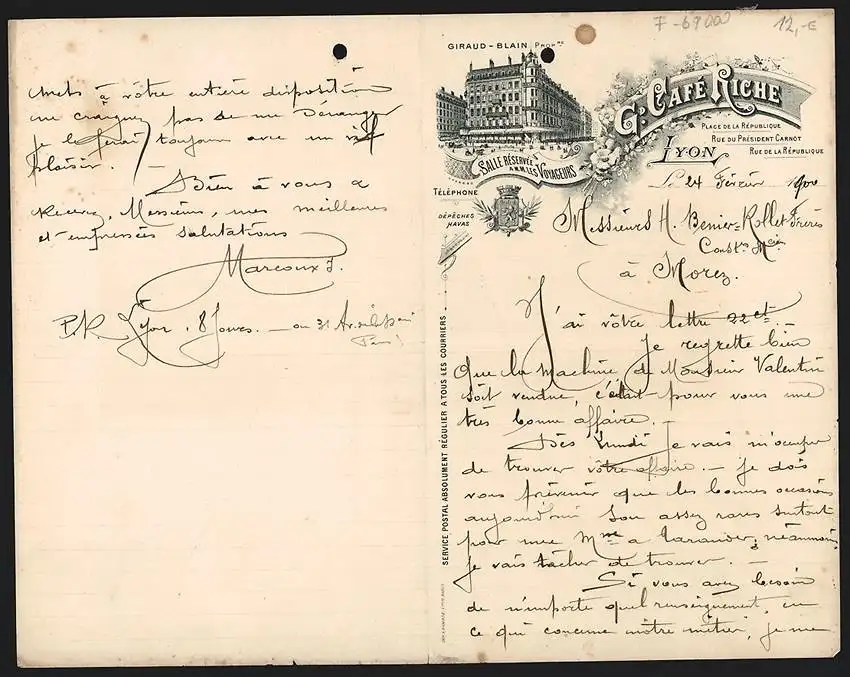 7-69000
12,-€
GIRAUD-BLAIN PROP.RE
Gd. CAFÉ RICHE
PLACE DE LA RÉPUBLIQUE
RUE DU PRÉSIDENT CARNOT
LYON
RUE DE LA RÉPUBLIQUE
SALLE RÉSERVÉE
À MM. LES VOYAGEURS
TÉLÉPHONE
DÉPÊCHES
HAVAS
SERVICE POSTAL ABSOLUMENT RÉGULIER A TOUS LES COURRIERS
Le 24 Février 1900
Messieurs H. Benier-Rollet Frères
Const.rs Mcien
à Morez.
J'ai vôtre lettre 22 ct.
Je regrette bien
Que la machine de Monsieur Valentin
soit vendue, c'était pour vous une
très bonne affaire. —
Dès Lundi je vais m'occuper
de trouver vôtre affaire. — je dois
vous prévenir que les bonnes occasions
aujourd'hui son assez rares surtout
pour une Mme à tarauder; néanmoins
je vais tâcher de trouver. —
Si vous avez besoin
de n'importe quel renseignement, en
ce qui concerne nôtre métier, je me
mets à vôtre entière disposition
ne craignez pas de me Déranger
je le ferai toujours avec un vif
plaisir. —
Bien à vous &
Recevez, Messieurs, mes meilleures
et empressées salutations
Marcoux J.
P.R. Lyon. 8 Jours. — ou 31 Av.
Paris